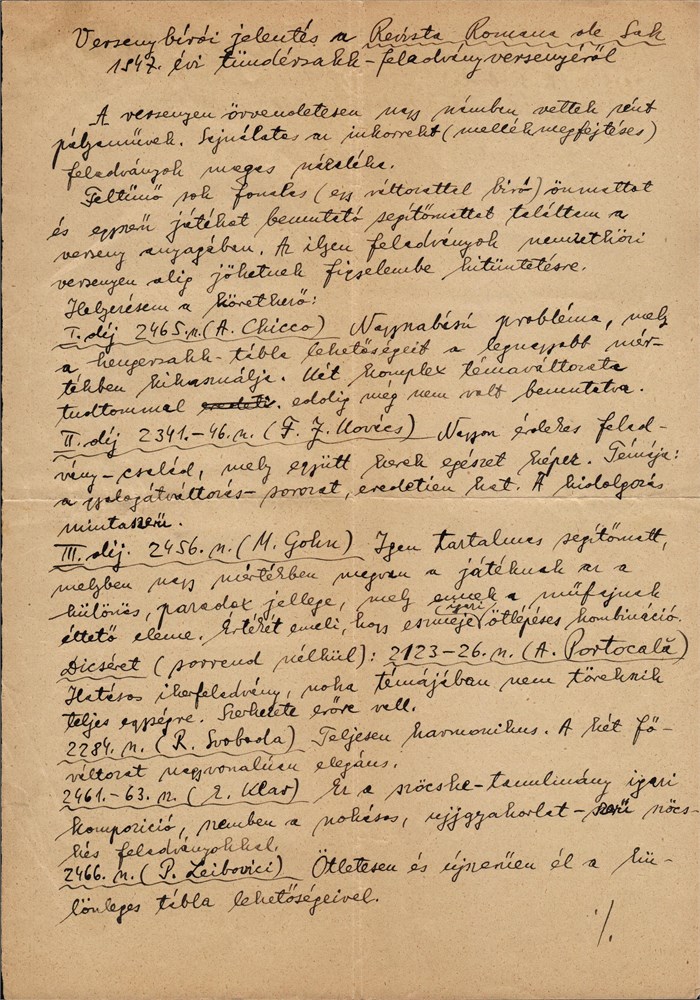 Versenybírói jelentés a Revista Romana de Sah
1947. évi tündérsakk-feladványversenyéről
A versenyen örvendetesen nagy számban vettek részt
pályaművek. Sajnálatos az inkorrekt (mellékmegfejtéses)
feladványok magas százaléka.
Feltűnő sok fonalas (egy változattal bíró) önmattot
és egyszerű játékot bemutató segítőmattot találtam a
verseny anyagában. Az ilyen feladványok nemzetközi
versenyen alig jöhetnek figyelembe kitüntetésre.
Helyezésem a következő:
I. díj 2465.n.(A. Chicco) Nagyszabású probléma, mely
a hengersakk-tábla lehetőségeit a legnagyobb mér-
tékben kihasználja. Két komplex témaváltozata
tudtommal eddig még nem volt bemutatva.
II. díj 2341.-46.n. (F. J. Kovács) Nagyon érdekes felad-
vány-család, mely együtt kerek egészet képez. Témája:
a gyalogátváltozás-sorozat, eredetien hat. A kidolgozás
mintaszerű.
III. díj. 2456. n. (M. Gohn) Igen tartalmas segítőmatt,
melyben nagy mértékben megvan a játéknak az a
különös, paradox jellege, mely ennek a műfajnak
éltető eleme. Értékét emeli, hogy eszméje igazi ötlépéses kombináció.
Dicséret (sorrend nélkül): 2123-26.n. (A. Portocală)
Hatásos ikerfeladvány, noha témájában nem törekszik
teljes egységre. Szerkezete erőre vall.
2284. n. (R. Svoboda) Teljesen harmonikus. A két fő-
változat nagyvonalúan elegáns.
2461.-63. n. (E. Klar) Ez a szöcske-tanulmány igazi
kompozíció, szemben a szokásos, ujjgyakorlat-szerű szöcs-
kés feladványokkal.
2466. n. (P. Leibovici) Ötletesen és újszerűen él a kü-
lönleges tábla lehetőségeivel.
./.